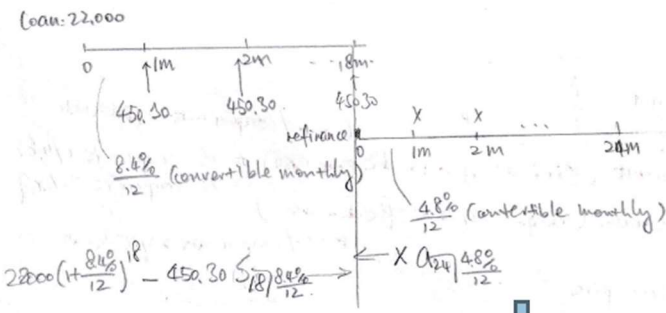 Loan: 22,000
0 1m 2m ... 18m
450.30 450.30 450.30
refinance
x x ...
0 1m 2m 24m
8.4%/12 (convertible monthly)
4.8%/12 (convertible monthly)
22000(1+8.4%/12)^18 − 450.30 S18⌉8.4%/12 → ← X a24⌉4.8%/12